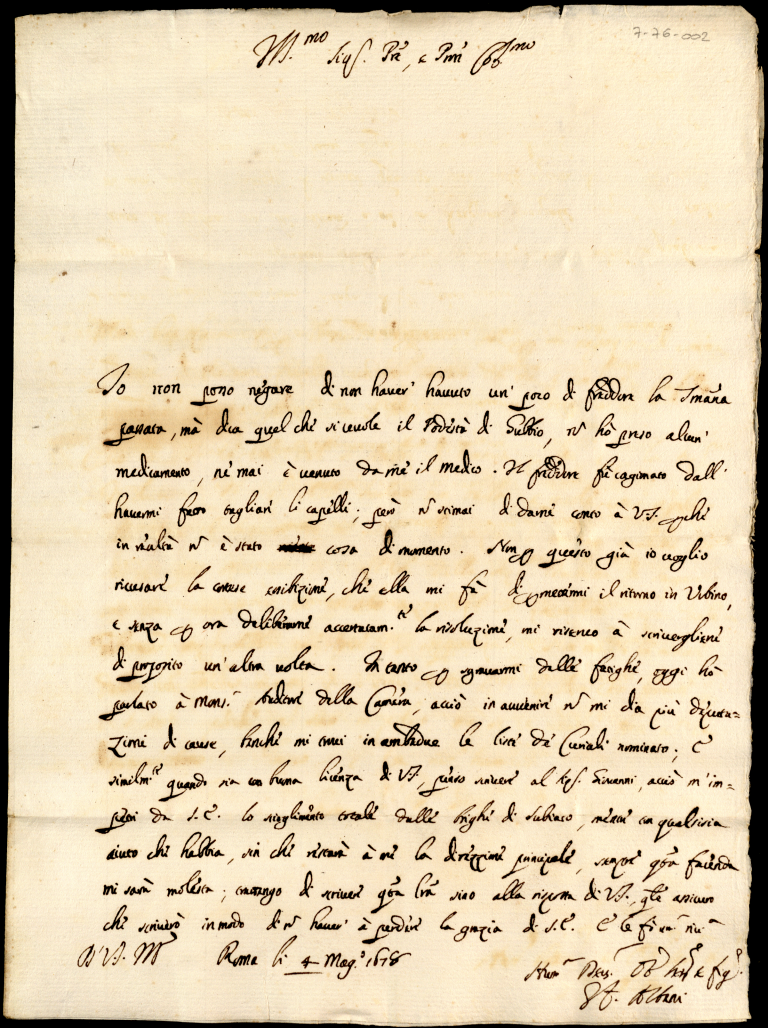 7-76-002
Ill.mo Sig.r P̃re, e P̃ron Col.mo
Io non posso negare di non haver' havuto un' poco di freddore la Smãna
passata, mà dica quel che si vuole il Podestà di Gubbio, nõ hò preso alcun'
medicamento, nè mai è venuto da me il medico. Il freddore fù cagionato dall'
havermi fatto tagliare li capelli; però nõ stimai di darne conto à V.S. perche
in realtà nõ è stato cosa di momento. Non per questo già io voglio
ricusare la cortese esibizione, che ella mi fà di permettermi il ritorno in Urbino,
e senza per ora deliberarne accertatam.te la risoluzione, mi riservo à scrivergliene
di proposito un' altra volta. In tanto per sgravarmi delle fatighe, oggi hò
parlato à Mons.r Auditore della Camera, acciò in avvenire nõ mi dia più deputa=
zioni di cause, benche mi trovi in ambedue le liste de Curiali nominato; E
similm.te quando sia con buona licenza di V.S., penso scrivere al Sig.r Giovanni, acciò m'im=
petri da S.E. lo scioglimento totale dalle brighe di Subiaco, mentre con qualsisia
aiuto che habbia, sin che resterà à me la direzzione principale, sempre q̃sta facenda
mi sarà molesta; trattengo di scrivere q̃sta l̃ra sino alla risposta di V.S., q̃le assicuro
che scriverò in modo di nõ haver' à perdere la grazia di S.E. E le fò
D V.S. Ill.ma Roma li 4 Mag.o 1678
Hum.o Dev. Obb. e fig.o
Albani